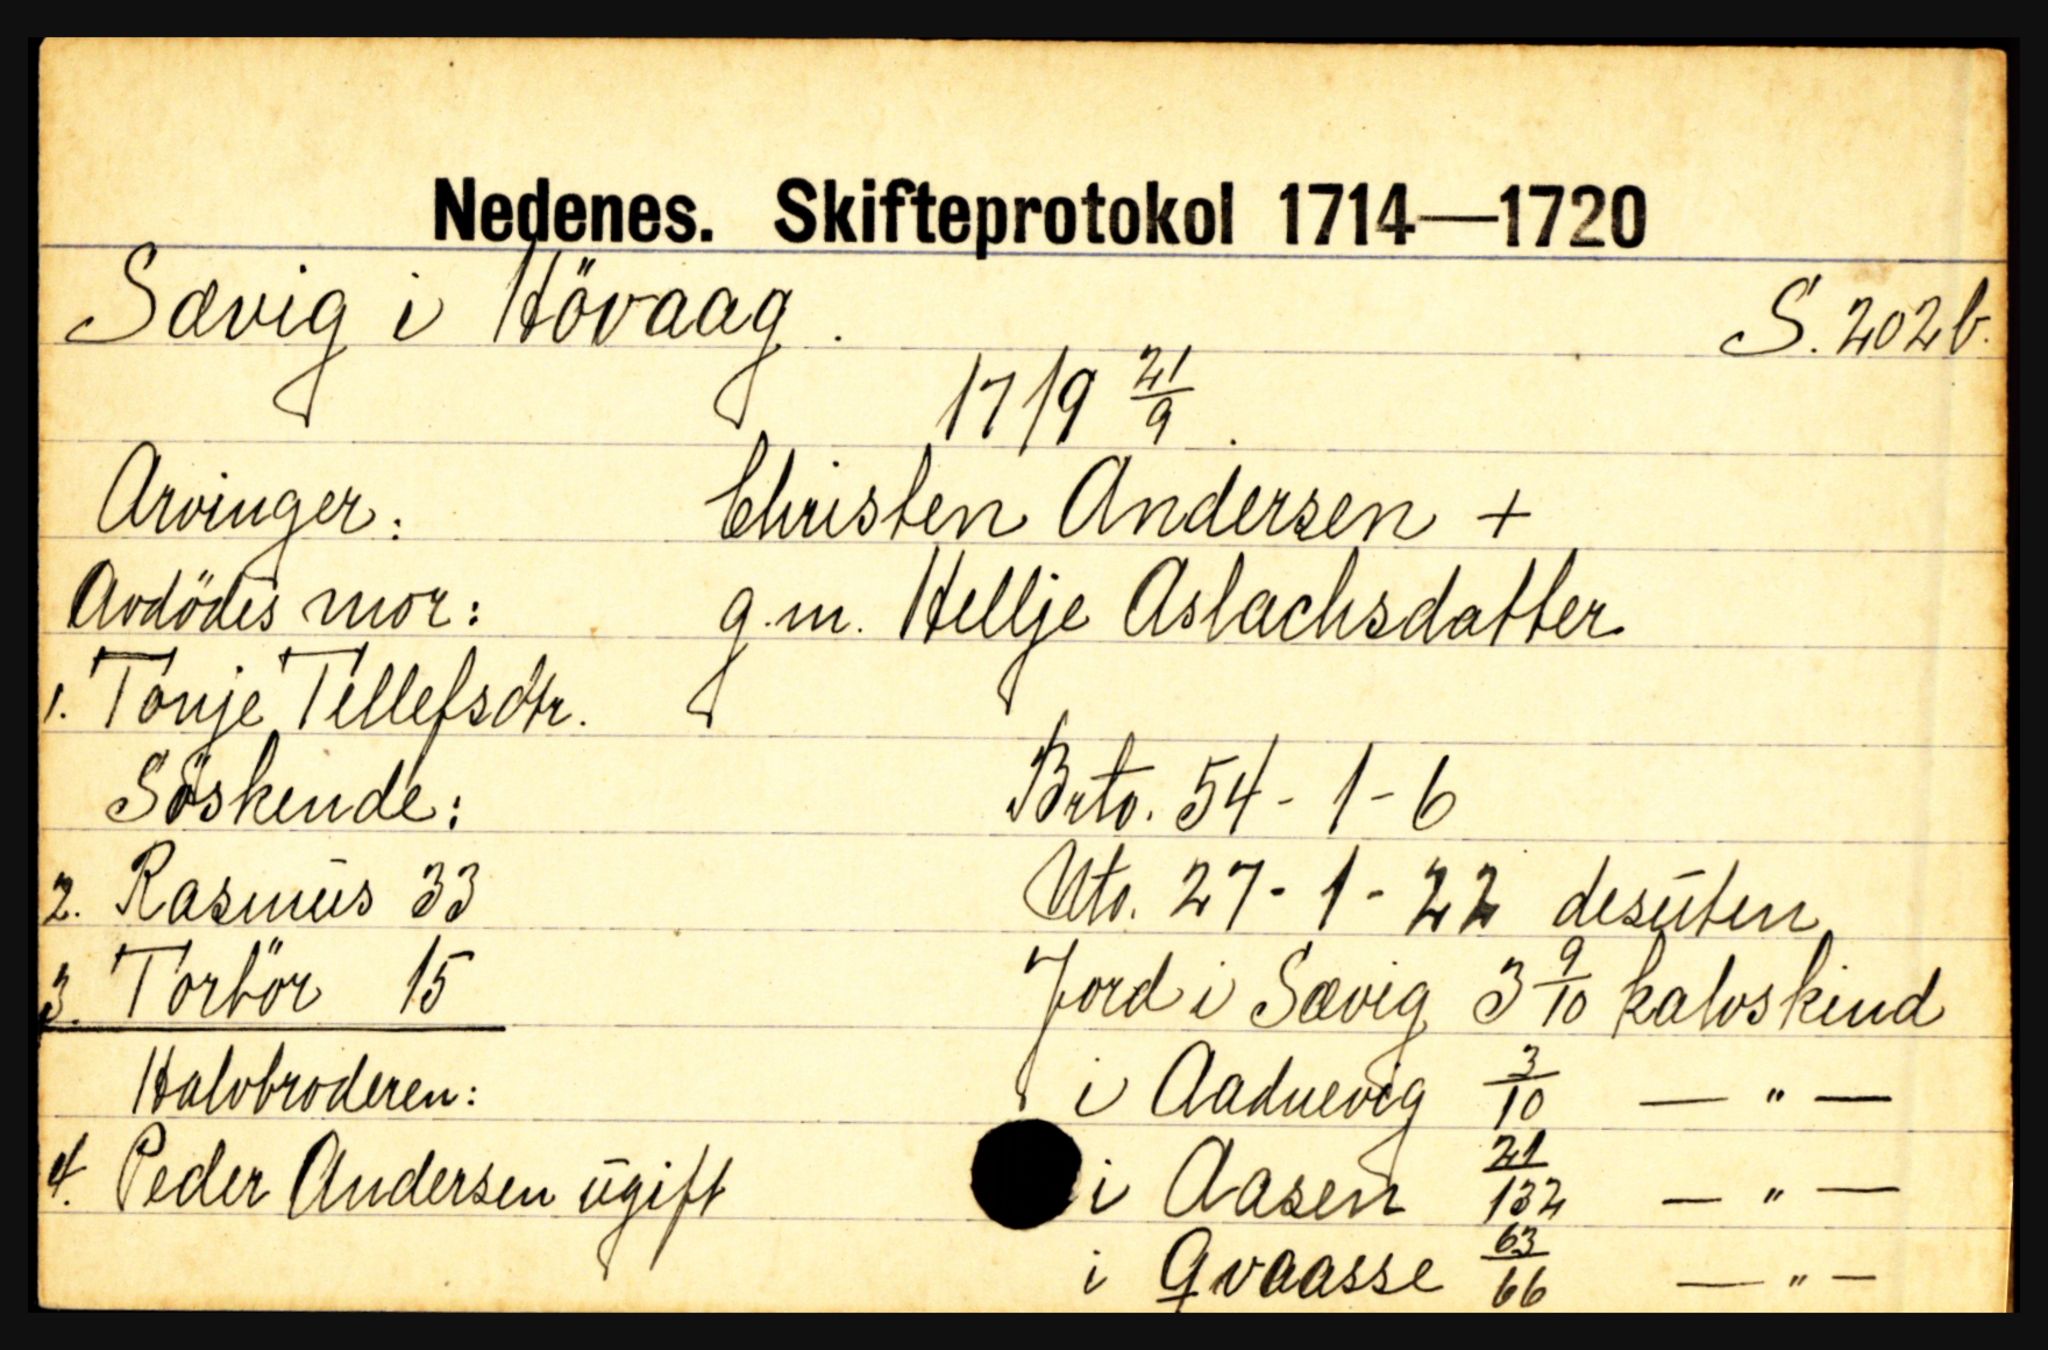 Nedenes. Skifteprotokol 1714—1720
Sævig i Hövaag. S. 202 b.
1719 21/9.
Arvinger: Christen Andersen +
Avdödes mor: g.m. Hellje Aslachsdatter
1. Tonje Tellefsdtr.
Söskende: Brto. 54 - 1 - 6
2. Rasmus 33 Nto. 27 - 1 - 22 desuten
3. Torbör 15 Jord i Sævig 3 9/10 kalvskind
Halvbroderen: i Aadnevig 3/10 — " —
4. Peder Andersen ugift i Aasen 21/132 — " —
i Qvaasse 63/66 — " —